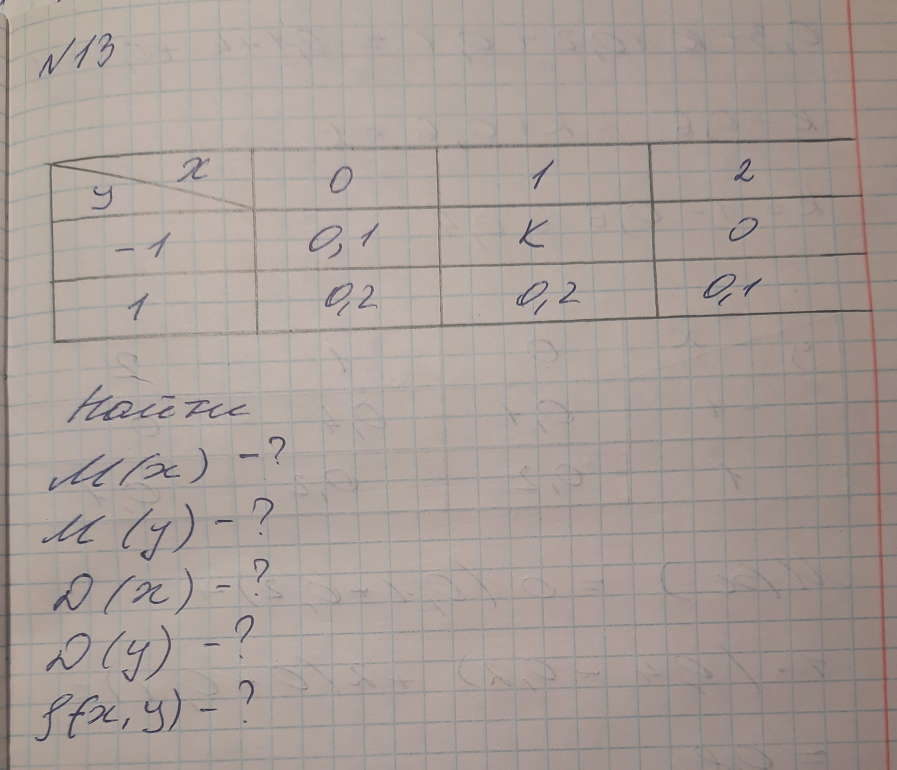 N13
y x 0 1 2
-1 0,1 K 0
1 0,2 0,2 0,1
Найти
M(x) -?
M(y) -?
D(x) -?
D(y) -?
ρ(x,y) -?